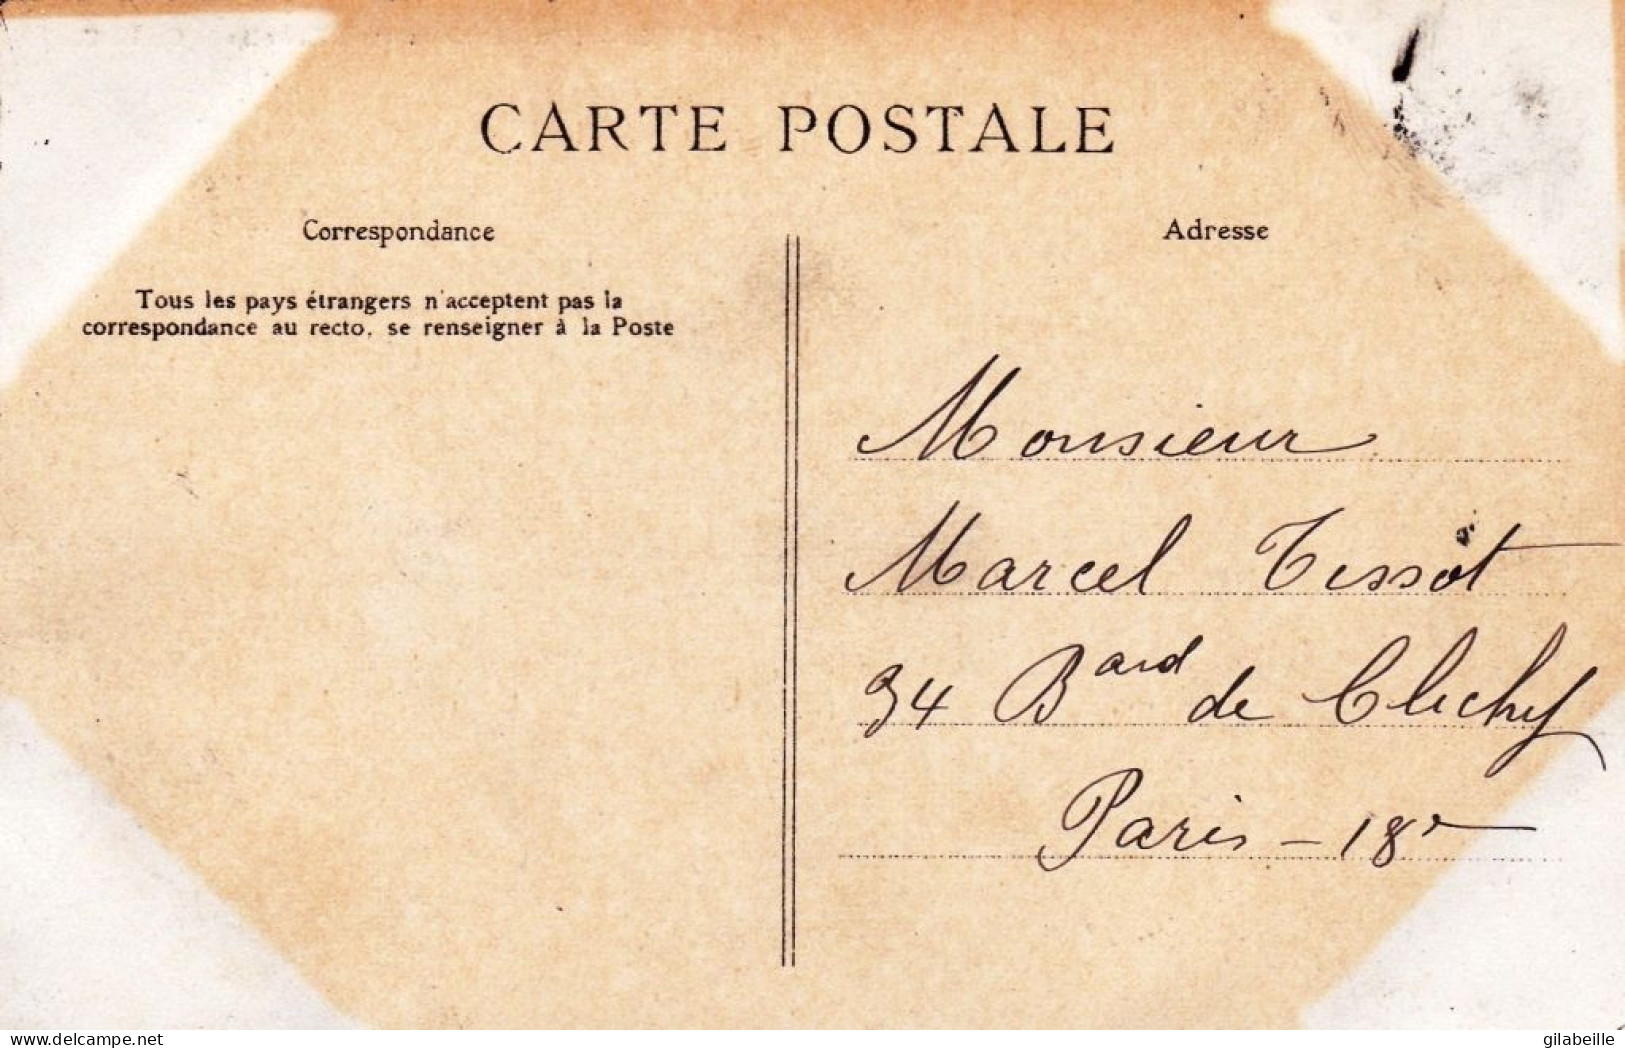 CARTE POSTALE
Correspondance
Tous les pays étrangers n'acceptent pas la
correspondance au recto, se renseigner à la Poste
Adresse
Monsieur
Marcel Tissot
34 Bard de Clichy
Paris - 18e
delcampe.net
gilabeille